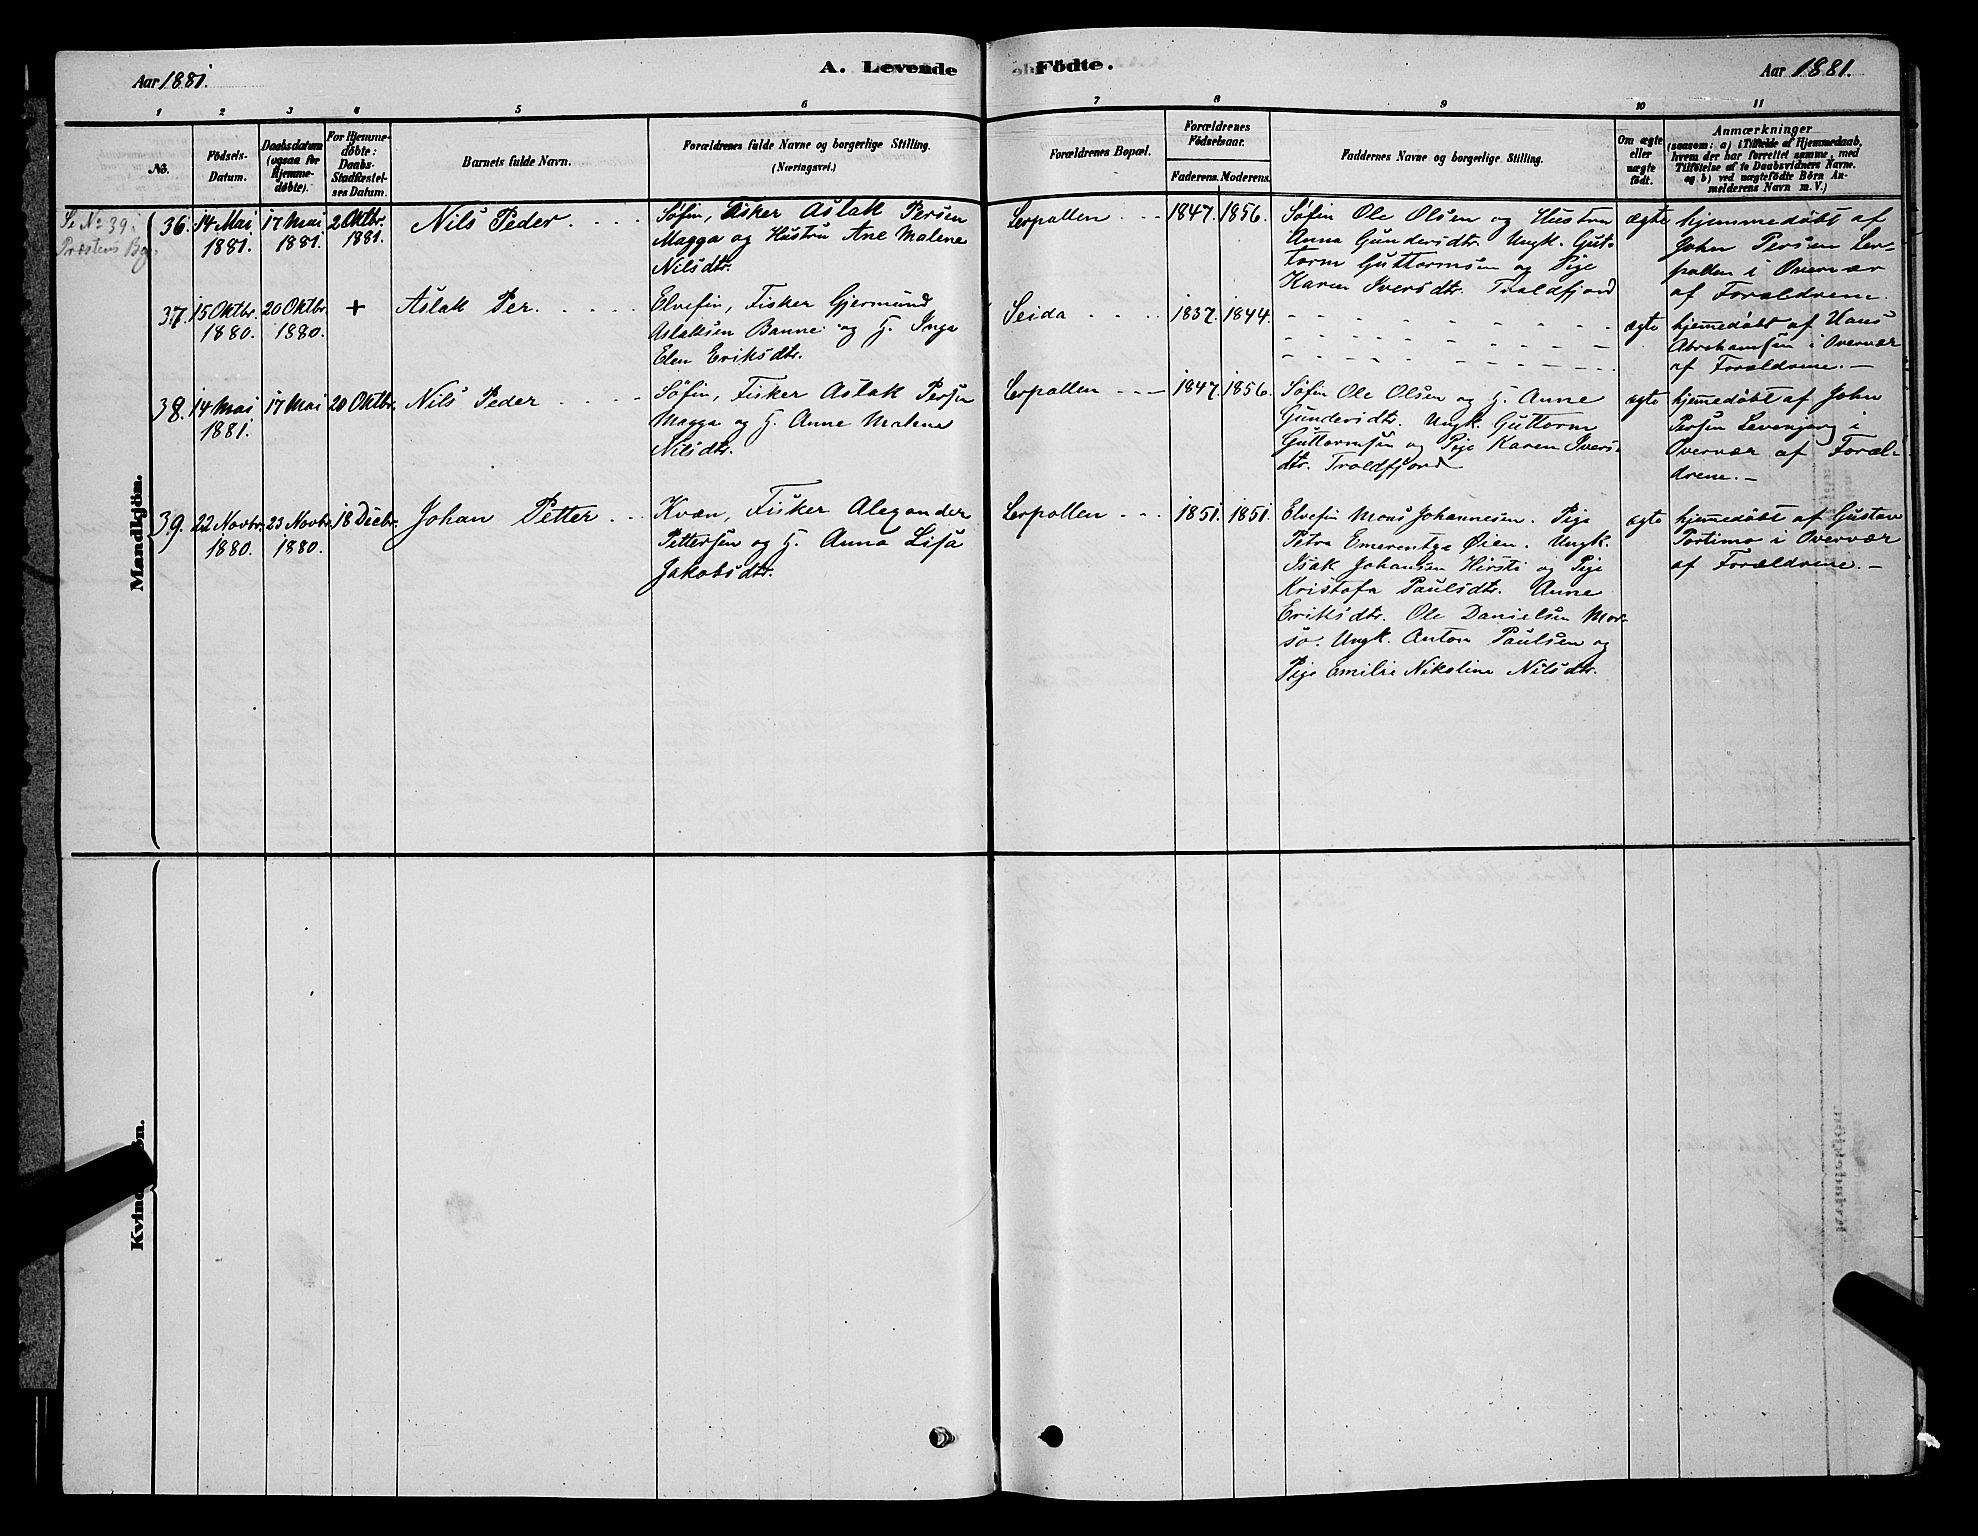 Aar 1881.
A. Levende
Födte.
Aar 1881.
1 2 3 4 5 6 7 8 9 10 11
No.
Födsels-
Datum.
Daabsdatum
(ogsaa for
Hjemme-
døbte).
For Hjemme-
døbte:
Daabs-
Stadfæstel-
ses Datum.
Barnets fulde Navn.
Forældrenes fulde Navne og borgerlige Stilling.
(Næringsvei.)
Forældrenes Bopæl.
Forældrenes
Fødselsaar.
Faderens. Moderens.
Faddernes Navne og borgerlige Stilling.
Om ægte
eller
uægte
født.
Anmærkninger
(saasom: a) i Tilfælde af Hjemmedaab,
hvem der har forrettet samme, med
Tilføielse af to Daabsvidners Navne.
og b) ved uægtefødte Börn An-
melderens Navn m. V.)
Mandkjön.
Se No 39 i
Præstens Bog.
36.
14 Mai
1881.
17 Mai
1881.
2 Oktbr.
1881.
Nils Peder
Søfin, Fisker Aslak Persen
Magga og Hustru Ane Malene
Nilsdtr.
Lerpollen
1847. 1856.
Søfin Ole Olsen og Hustru
Anna Gundersdtr. Ungk. Gut-
torm Guttormsen og Pige
Karen Iversdtr. Troldfjord
ægte
hjemmedøbt af
John Persen Ler-
pollen i Overvær
af Forældrene.
37.
15 Oktbr.
1880.
20 Oktbr
1880.
+
Aslak Per.
Elvefin, Fisker Gjermund
Aslaksen Banne og H. Inga
Elen Eriksdtr.
Seida
1837. 1844.
ægte
hjemedøbt af Hans
Abrahamsen i Overvær
af Forældrene. —
38.
14 Mai
1881.
17 Mai
20 Oktbr.
Nils Peder
Søfin, Fisker Aslak Persen
Magga og H. Anne Malene
Nilsdtr.
Lerpollen
1847. 1856.
Søfin Ole Olsen og H. Anne
Gundersdtr. Ungk. Guttorm
Guttormsen og Pige Karen Ivers-
dtr. Troldfjord
ægte
hjemedøbt af John
Persen Levenjarg i
Overvær af Foræl-
drene. —
39.
22 Novbr.
1880.
23 Novbr.
1880.
18 Decbr.
Johan Petter
Kvæn, Fisker Alexander
Pettersen og H. Anna Lisa
Jakobsdtr.
Lerpollen
1851. 1851.
Elvefin Mons Johannesen. Pige
Petra Emerentza Øien. Ungk.
Isak Johansen Hirsti og Pige
Kristofa Paulsdtr. Anne
Eriksdtr. Ole Danielsen Mor-
so. Ungk. Anton Paulsen og
Pige Emilie Nikoline Nilsdtr.
ægte
hjemedøbt af Gustav
Portimo i Overvær
af Forældrene. —